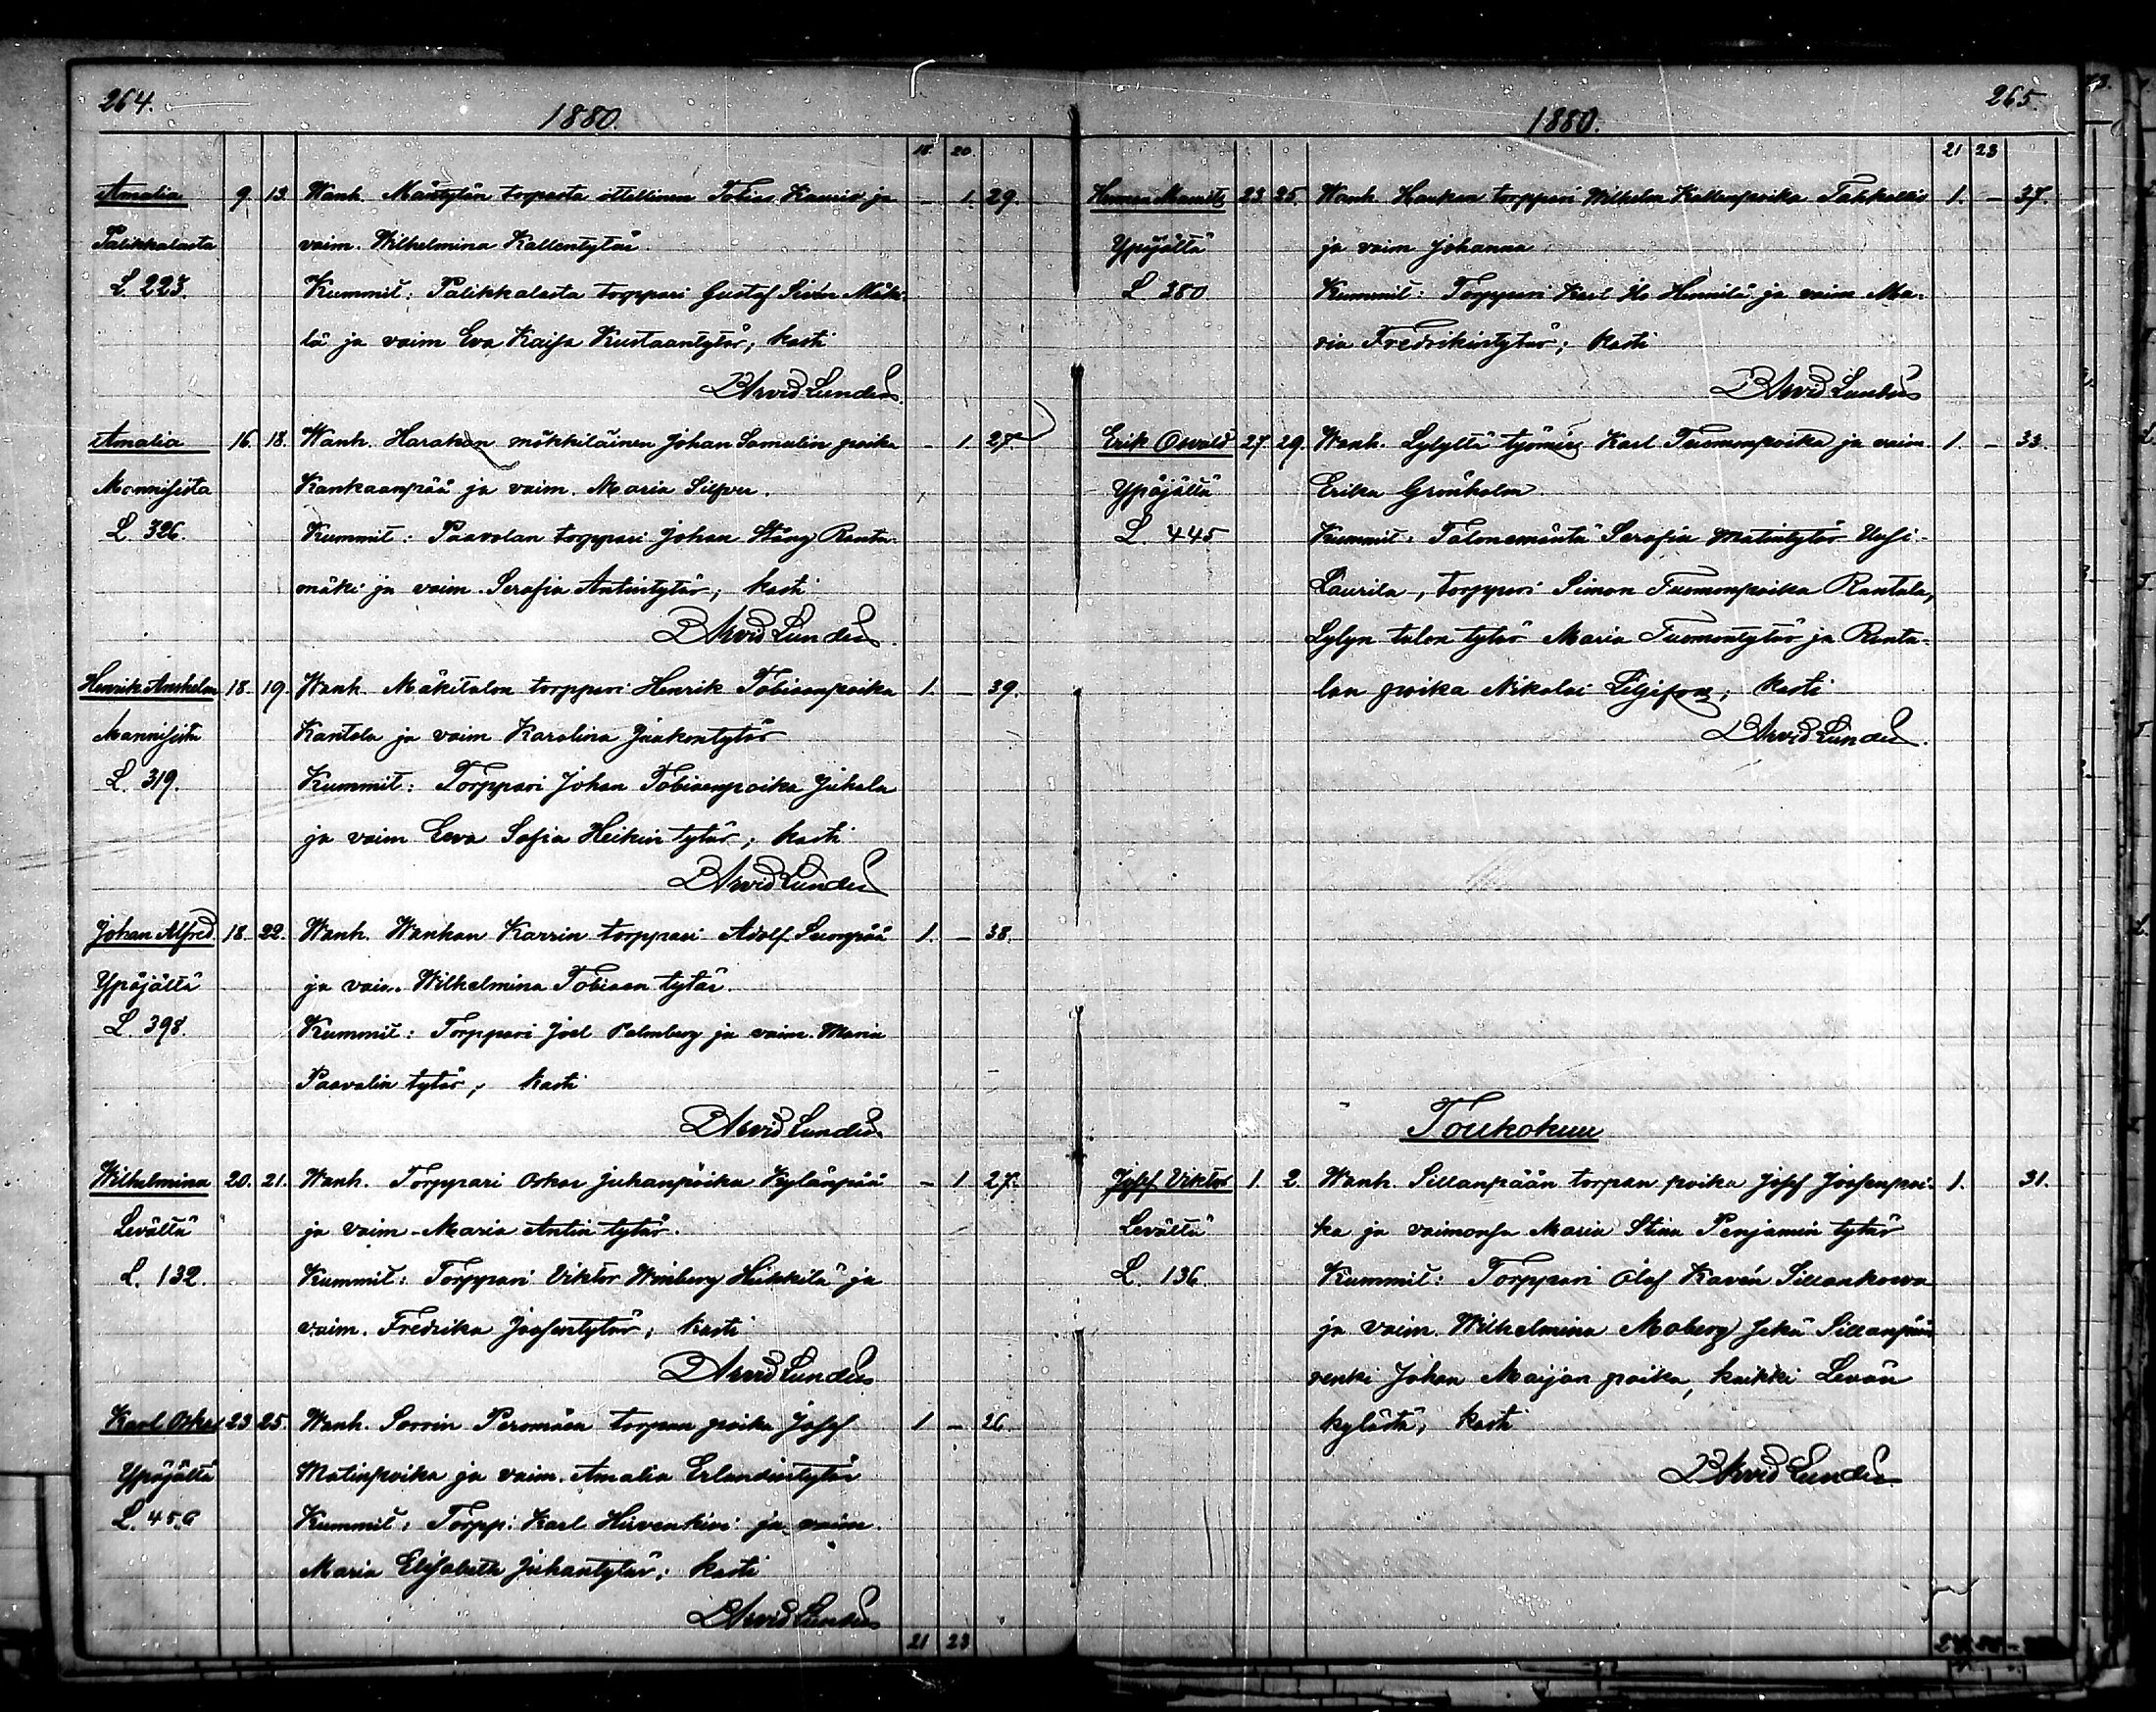 264.
1880.
18. 20.
Amalia 9. 13. Wanh. Mäntylän torpasta ittellinen Tobias Kauris ja - 1. 29.
Palikkalasta vaim. Wilhelmina Kallentytär
L 223. Kummit: Palikkalasta torppari Gustaf Sirén Mäki-
lä ja vaim Eva Kaisa Kustaantytär; kasti
B Arvid Lundén.
Amalia 16. 18. Wanh. Harakan mökkiläinen Johan Samulin poika - 1. 27.
Mannisista Kankaanpää ja vaim. Maria Silfver.
L. 326. Kummit: Paavolan torppari Johan Stång Ranta-
mäki ja vaim. Serafia Antintytär; kasti
B Arvid Lundén.
Henrik Anshelm 18. 19. Wanh. Mäkitalon torppari Henrik Tobiaanpoika 1. - 39.
Mannisista Kantola ja vaim Karolina Jaakontytär
L. 319. Kummit: Torppari Johan Tobiaanpoika Juhala
ja vaim Eeva Sofia Heikin tytär; kasti
B Arvid Lundén
Johan Alfred 18. 22. Wanh. Wanhan Karrin torppari Adolf Suonpää 1. - 38.
Ypäjältä ja vaim. Wilhelmina Tobiaan tytär.
L. 398. Kummit: Torppari Joel Palmberg ja vaim. Maria
Paavalin tytär; kasti
B Arvid Lundén
Wilhelmina 20. 21. Wanh. Torppari Oskar Juhanpoika Kylänpää - 1 27.
Levältä ja vaim. Maria Antin tytär.
L. 132. Kummit: Torppari Viktor Winberg Heikkilä ja
vaim. Fredrika Joosentytär; kasti
B Arvid Lundén
Karl Oskar 23 25. Wanh. Sorrin Peromaan torpan poika Josef 1 - 26.
Ypäjältä Matinpoika ja vaim. Amalia Erlandintytär
L. 456 Kummit: Torpp. Karl Hirvenkivi ja vaim.
Maria Elisabeth Juhantytär; kasti
B Arvid Lundén
21 23
265
1880.
21 23
Herman 23. 25. Wanh. Haukan torppari Wilhelm Kallenpoika 1. - 37.
Ypäjältä ja vaim Johanna
L 380 Kummit: Torppari Karl Hennilä ja vaim Ma-
ria Fredrikintytär; kasti
B Arvid Lundén
Erik Osvald 27. 29. Wanh. Lylyltä työmies Karl Tuomonpoika ja vaim 1. - 33.
Ypäjältä Erika Grönholm
L. 445 Kummit: Talonemäntä Serafia Matintytär Uusi-
Laurila, torppari Simon Tuomonpoika Rantala,
Lylyn talon tytär Maria Tuomontytär ja Ranta-
lan poika Nikolai Liljefors; kasti
B Arvid Lundén.
Toukokuu
Josef Viktor 1. 2. Wanh. Sillanpään torpan poika Josef Joosenpoi- 1. 31.
Levältä ka ja vaimonsa Maria Stina Penjamin tytär
L. 136. Kummit: Torppari Olof Kavén Sillankorva
ja vaim. Wilhelmina Moberg sekä Sillanpään
renki Johan Maijan poika, kaikki Levän
kylästä; kasti
B Arvid Lundén.